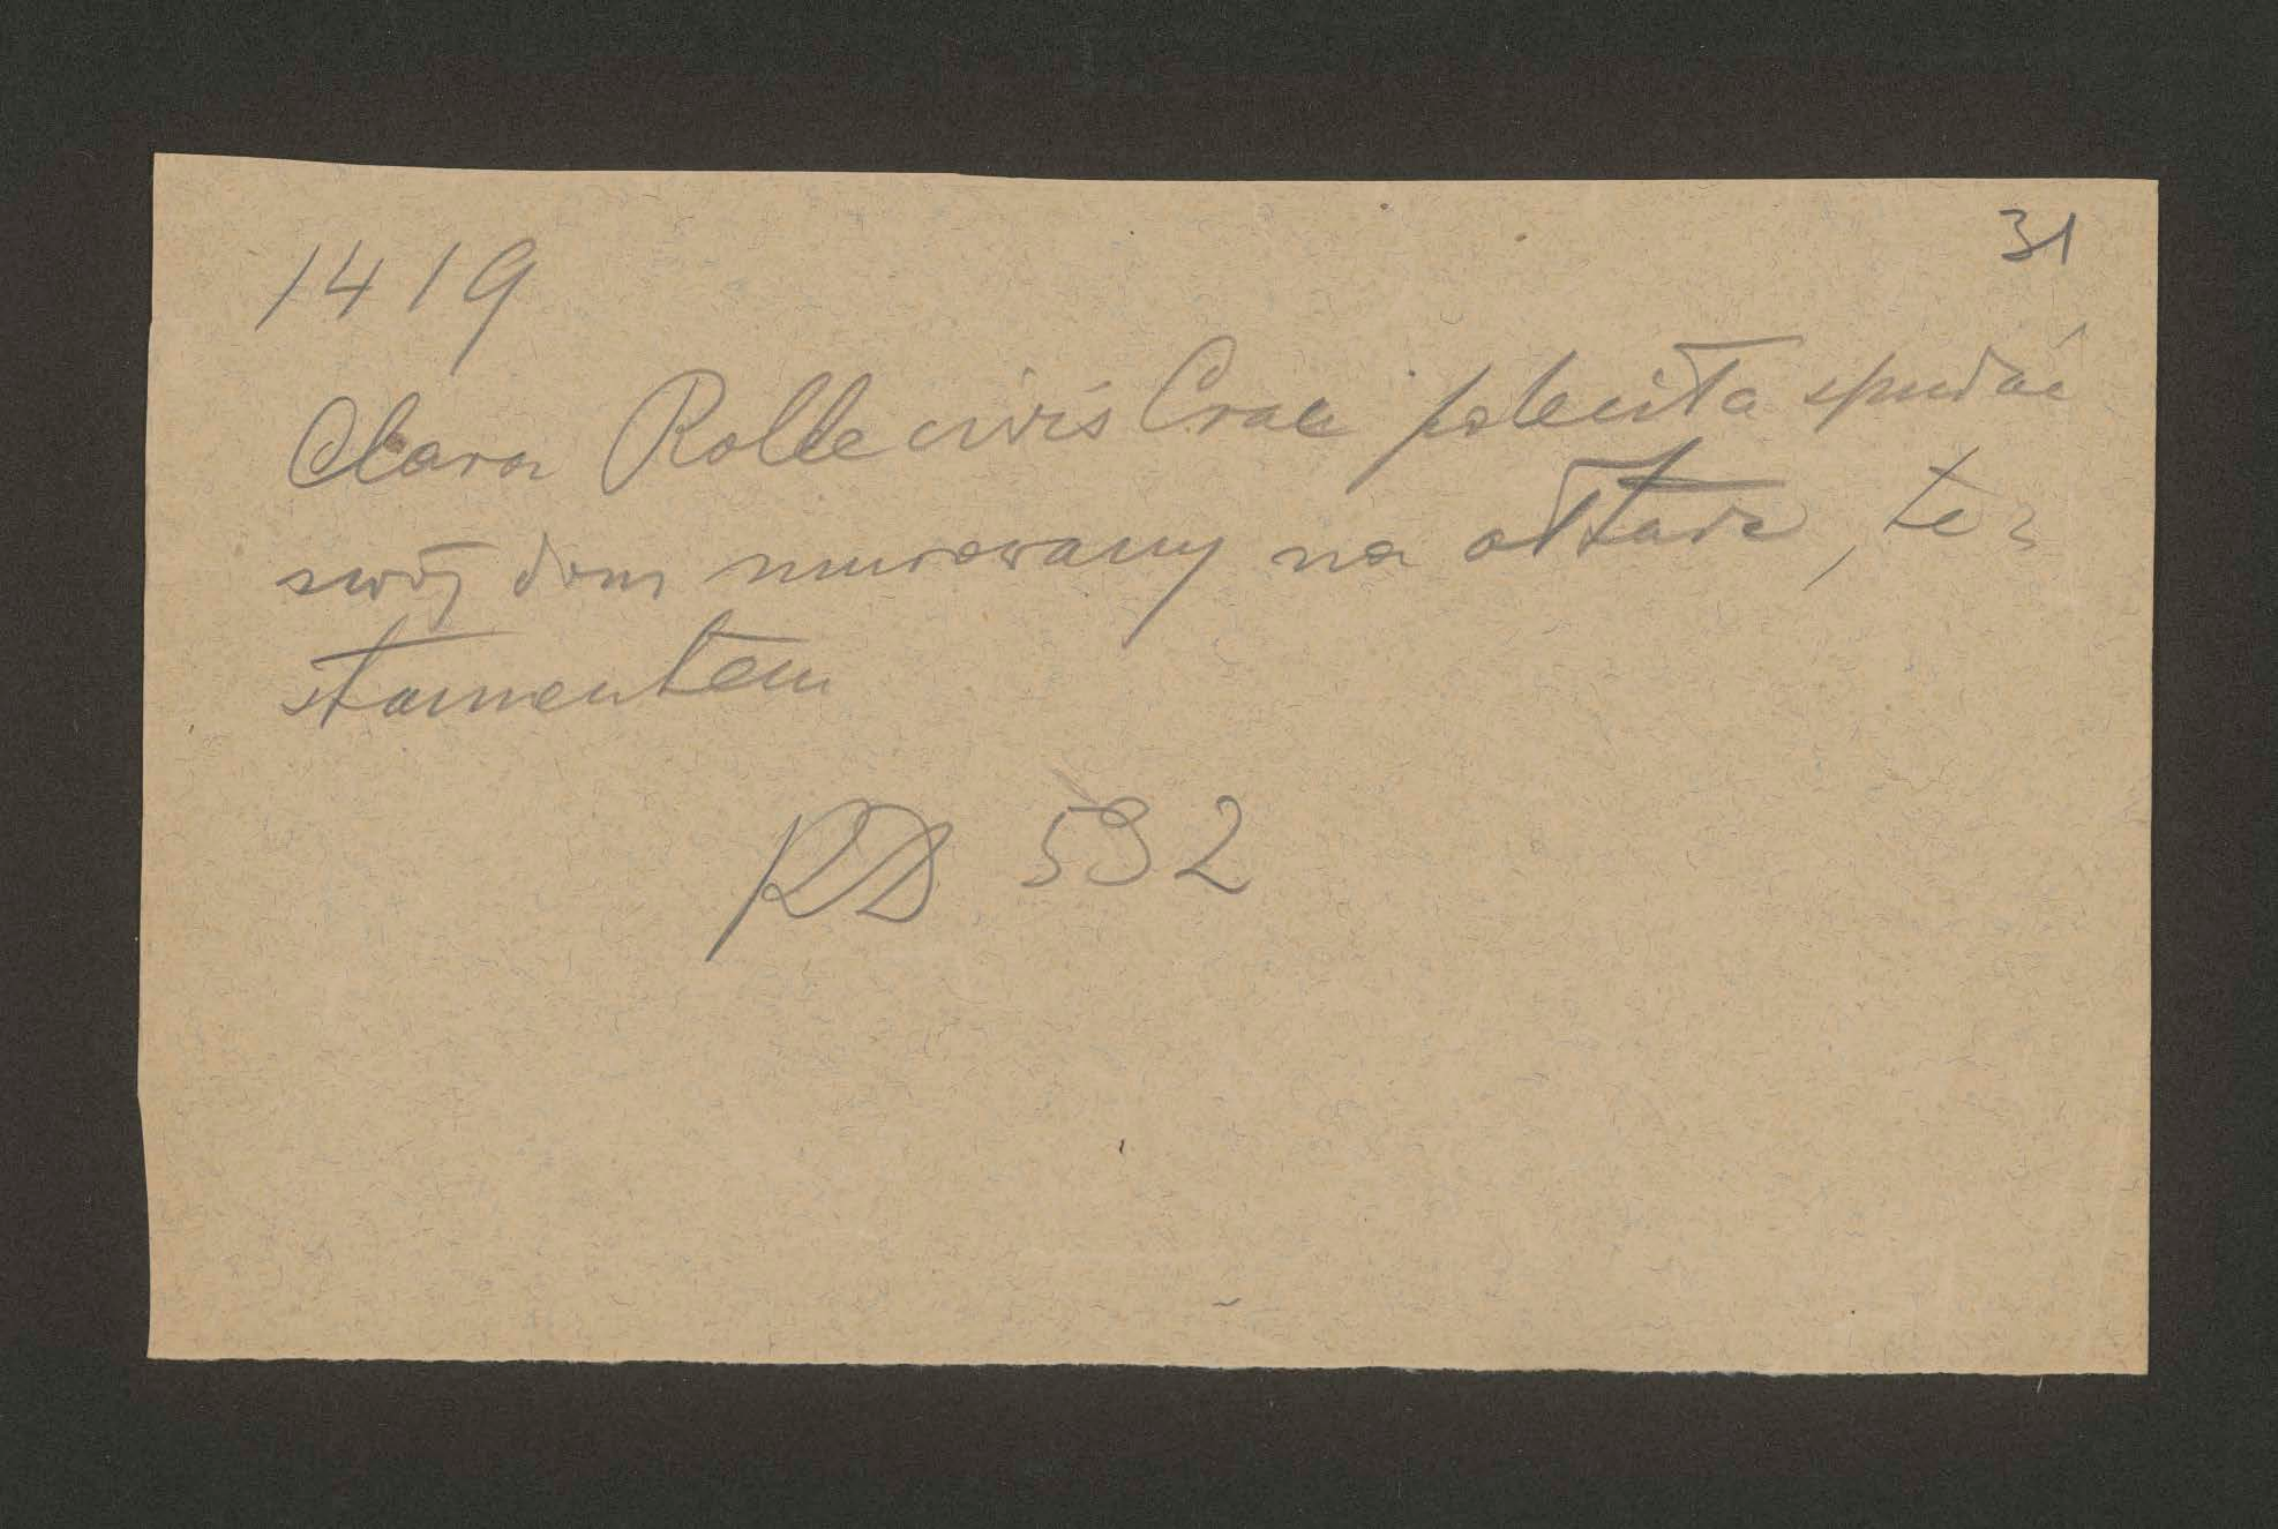 31
1419
Clara Rolle civis Crac poleciła sprzedać
swój dom murowany na ołtarz, te=
stamentem
RD 592